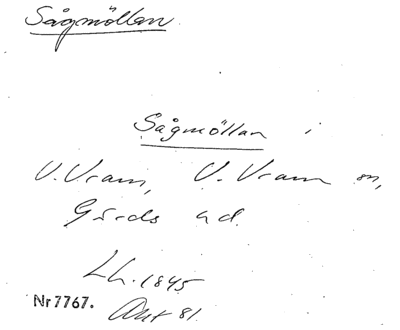 Sågmöllan
Sågmöllan i
V. Vram, V. Vram sn,
Gärds hd.
Lh. 1845
Akt 81.
Nr 7767.